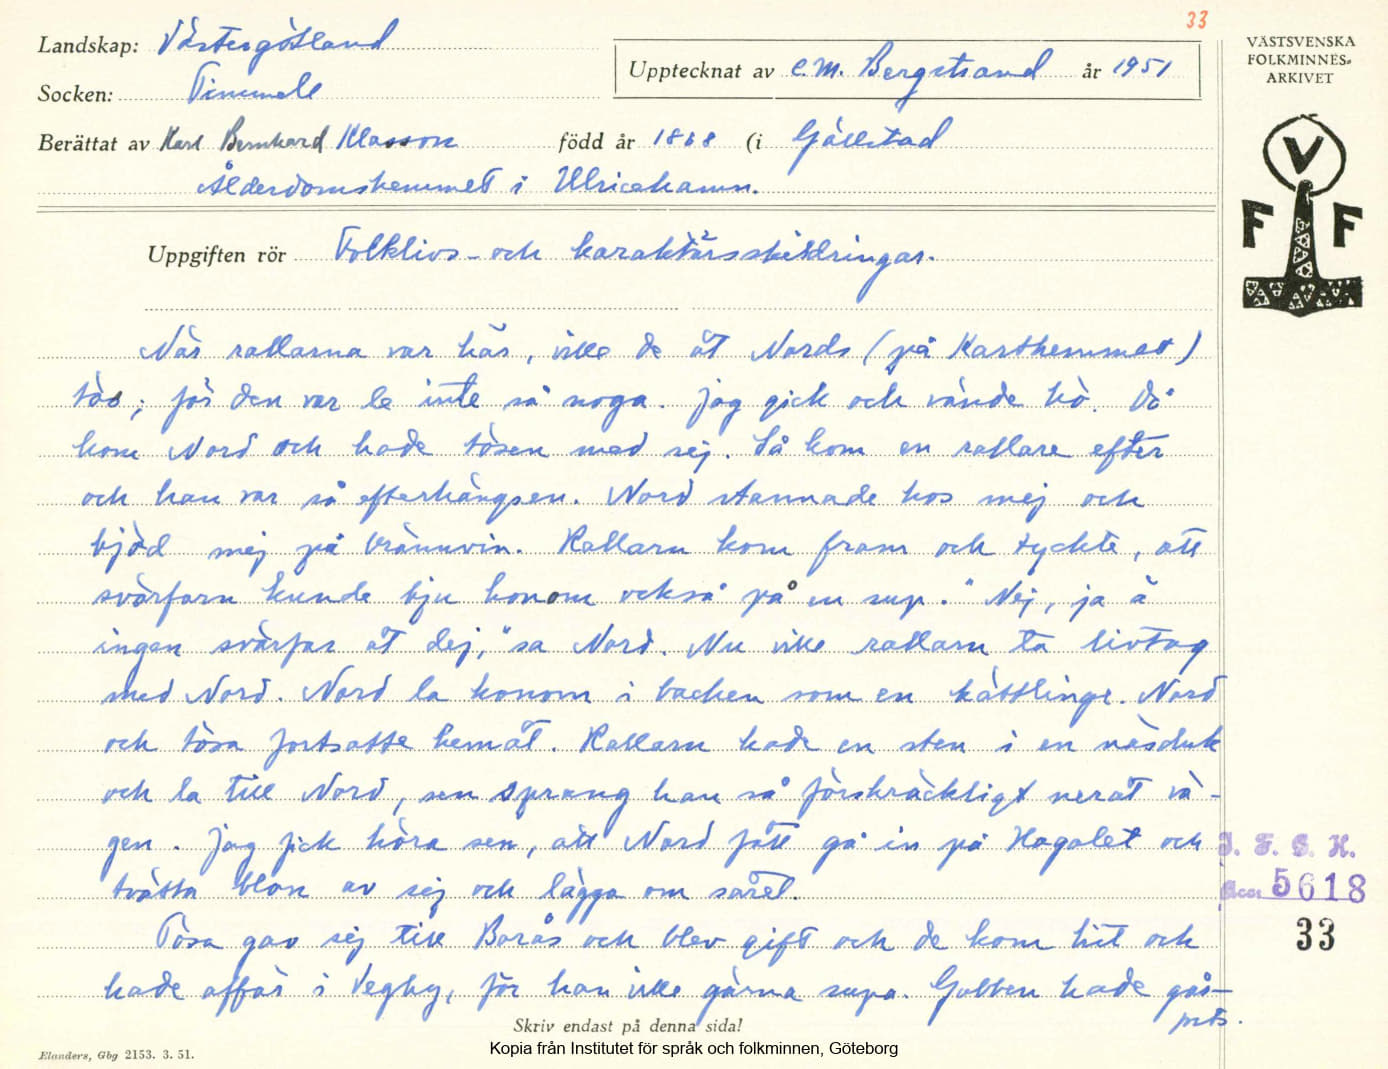 33
Landskap: Västergötland
Upptecknat av C.M. Bergstrand år 1951
Socken: Timmele
Berättat av Karl Bernhard Klasson född år 1868 (i Gällstad
Ålderdomshemmet i Ulricehamn.
Uppgiften rör Folklivs- och karaktärsskildringar.
När rallarna var här, ville de åt Nords (på Karsthemmet)
tös; för den var le inte så noga. Jag gick och vände hö. Då
kom Nord och hade tösen med sej. Så kom en rallare efter
och han var så efterhängsen. Nord stannade hos mej och
bjöd mej på brännvin. Rallarn kom fram och tyckte, att
svärfarn kunde bju honom också på en sup. "Nej, ja ä
ingen svärfar åt dej," sa Nord. Nu ville rallarn ta livtag
med Nord. Nord la honom i backen som en kättlinge. Nord
och tösa fortsatte hemåt. Rallarn hade en sten i en näsduk
och la till Nord, sen sprang han så förskräckligt neråt vä-
gen. Jag fick höra sen, att Nord fått gå in på Hagalet och
tvätta blon av sej och lägga om såret.
Tösa gav sej till Borås och blev gift och de kom hit och
hade affär i Vegby, för han ville gärna supa. Gubben hade gås-
pris.
Skriv endast på denna sida!
Kopia från Institutet för språk och folkminnen, Göteborg
Elanders, Gbg 2153. 3. 51.
VÄSTSVENSKA
FOLKMINNES-
ARKIVET
V
F F
I. F. G. H.
Acc. 5618
33